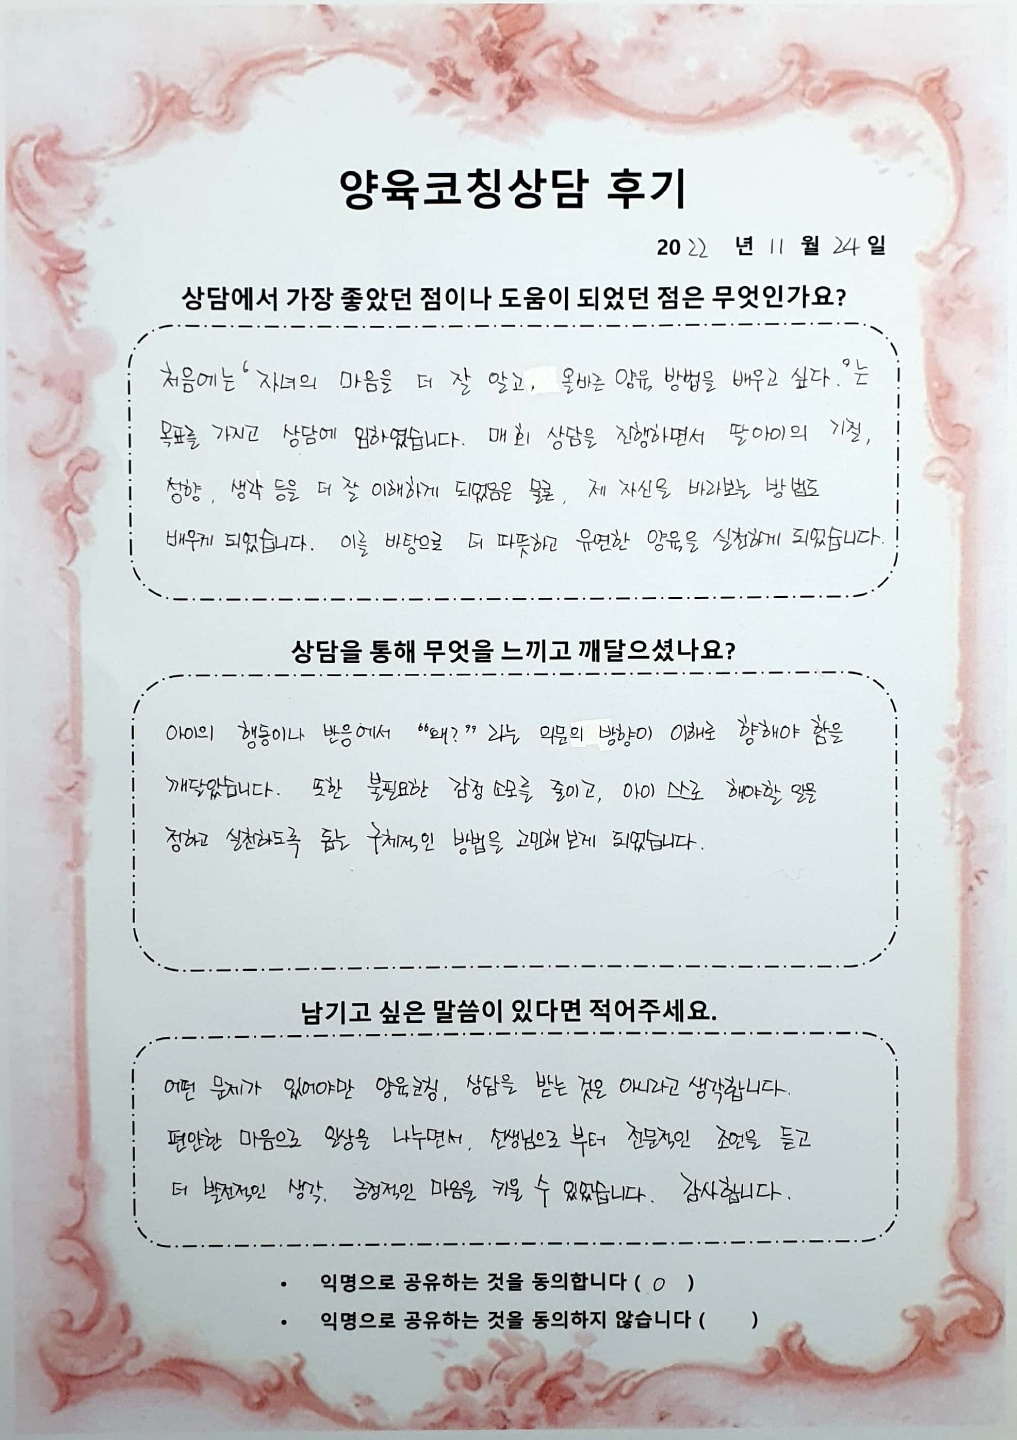 양육코칭상담 후기
2022 년 11 월 24일
상담에서 가장 좋았던 점이나 도움이 되었던 점은 무엇인가요?
처음에는 ‘자녀의 마음을 더 잘 알고, 올바른 양육 방법을 배우고 싶다.’는
목표를 가지고 상담에 임하였습니다. 매 회 상담을 진행하면서 딸아이의 기질,
성향, 생각 등을 더 잘 이해하게 되었음은 물론, 제 자신을 바라보는 방법도
배우게 되었습니다. 이를 바탕으로 더 따뜻하고 유연한 양육을 실천하게 되었습니다.
상담을 통해 무엇을 느끼고 깨달으셨나요?
아이의 행동이나 반응에서 “왜?” 라는 의문의 방향이 이해로 향해야 함을
깨달았습니다. 또한 불필요한 감정 소모를 줄이고, 아이 스스로 해야할 일을
정하고 실천하도록 돕는 구체적인 방법을 고민해 보게 되었습니다.
남기고 싶은 말씀이 있다면 적어주세요.
어떤 문제가 있어야만 양육코칭, 상담을 받는 것은 아니라고 생각합니다.
편안한 마음으로 일상을 나누면서, 선생님으로 부터 전문적인 조언을 듣고
더 발전적인 생각, 긍정적인 마음을 키울 수 있었습니다. 감사합니다.
• 익명으로 공유하는 것을 동의합니다 ( O )
• 익명으로 공유하는 것을 동의하지 않습니다 ( )